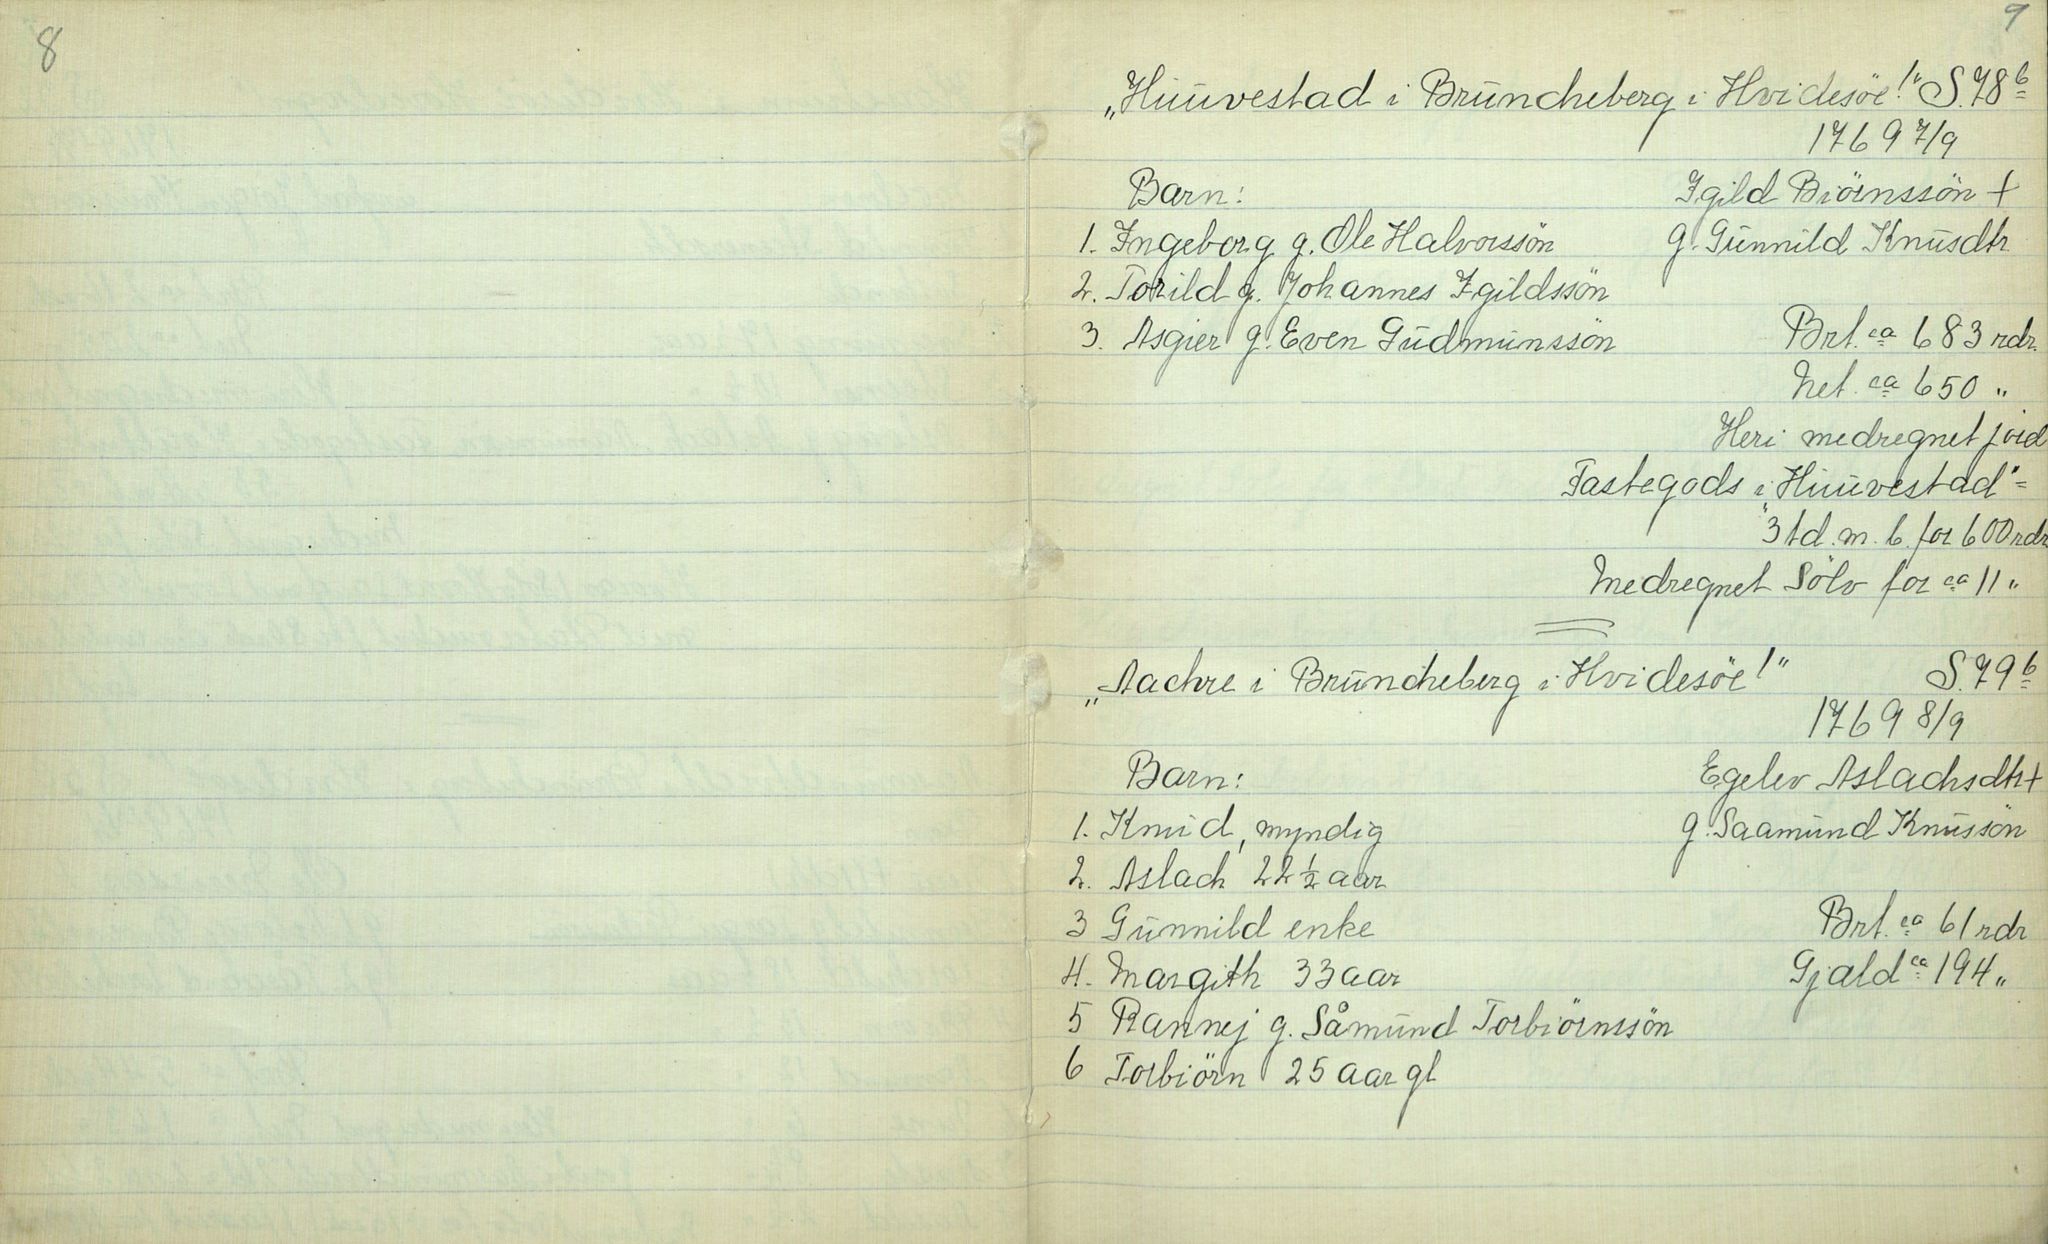 8
9
„Huuvestad i Bruncheberg i Hvidesöe!" S. 78 b
1769 7/9
Barn: Igild Biörnssön +
1. Ingeborg g. Ole Halvorssön g. Gunnild Knusdtr.
2. Torild g. Johannes Igildssön
3. Asgier g. Even Gudmunssön Brt. ca 683 rdr.
Net. ca 650 "
Heri medregnet jord
Fastegods i „Huuvestad" =
3 td. m. b. for 600 rdr
Medregnet Sölv for ca 11 "
„Aachre i Bruncheberg i Hvidesöe!" S. 79 b
1769 8/9
Barn: Egelev Aslachsdtr +
1. Knud, myndig g. Saamund Knussön
2. Aslach 22 ½ aar
3 Gunnild enke Brt. ca 61 rdr
4. Margith 33 aar Gjald ca 194 "
5 Rannej g. Såmund Torbiörnssön
6 Torbiörn 25 aar gl